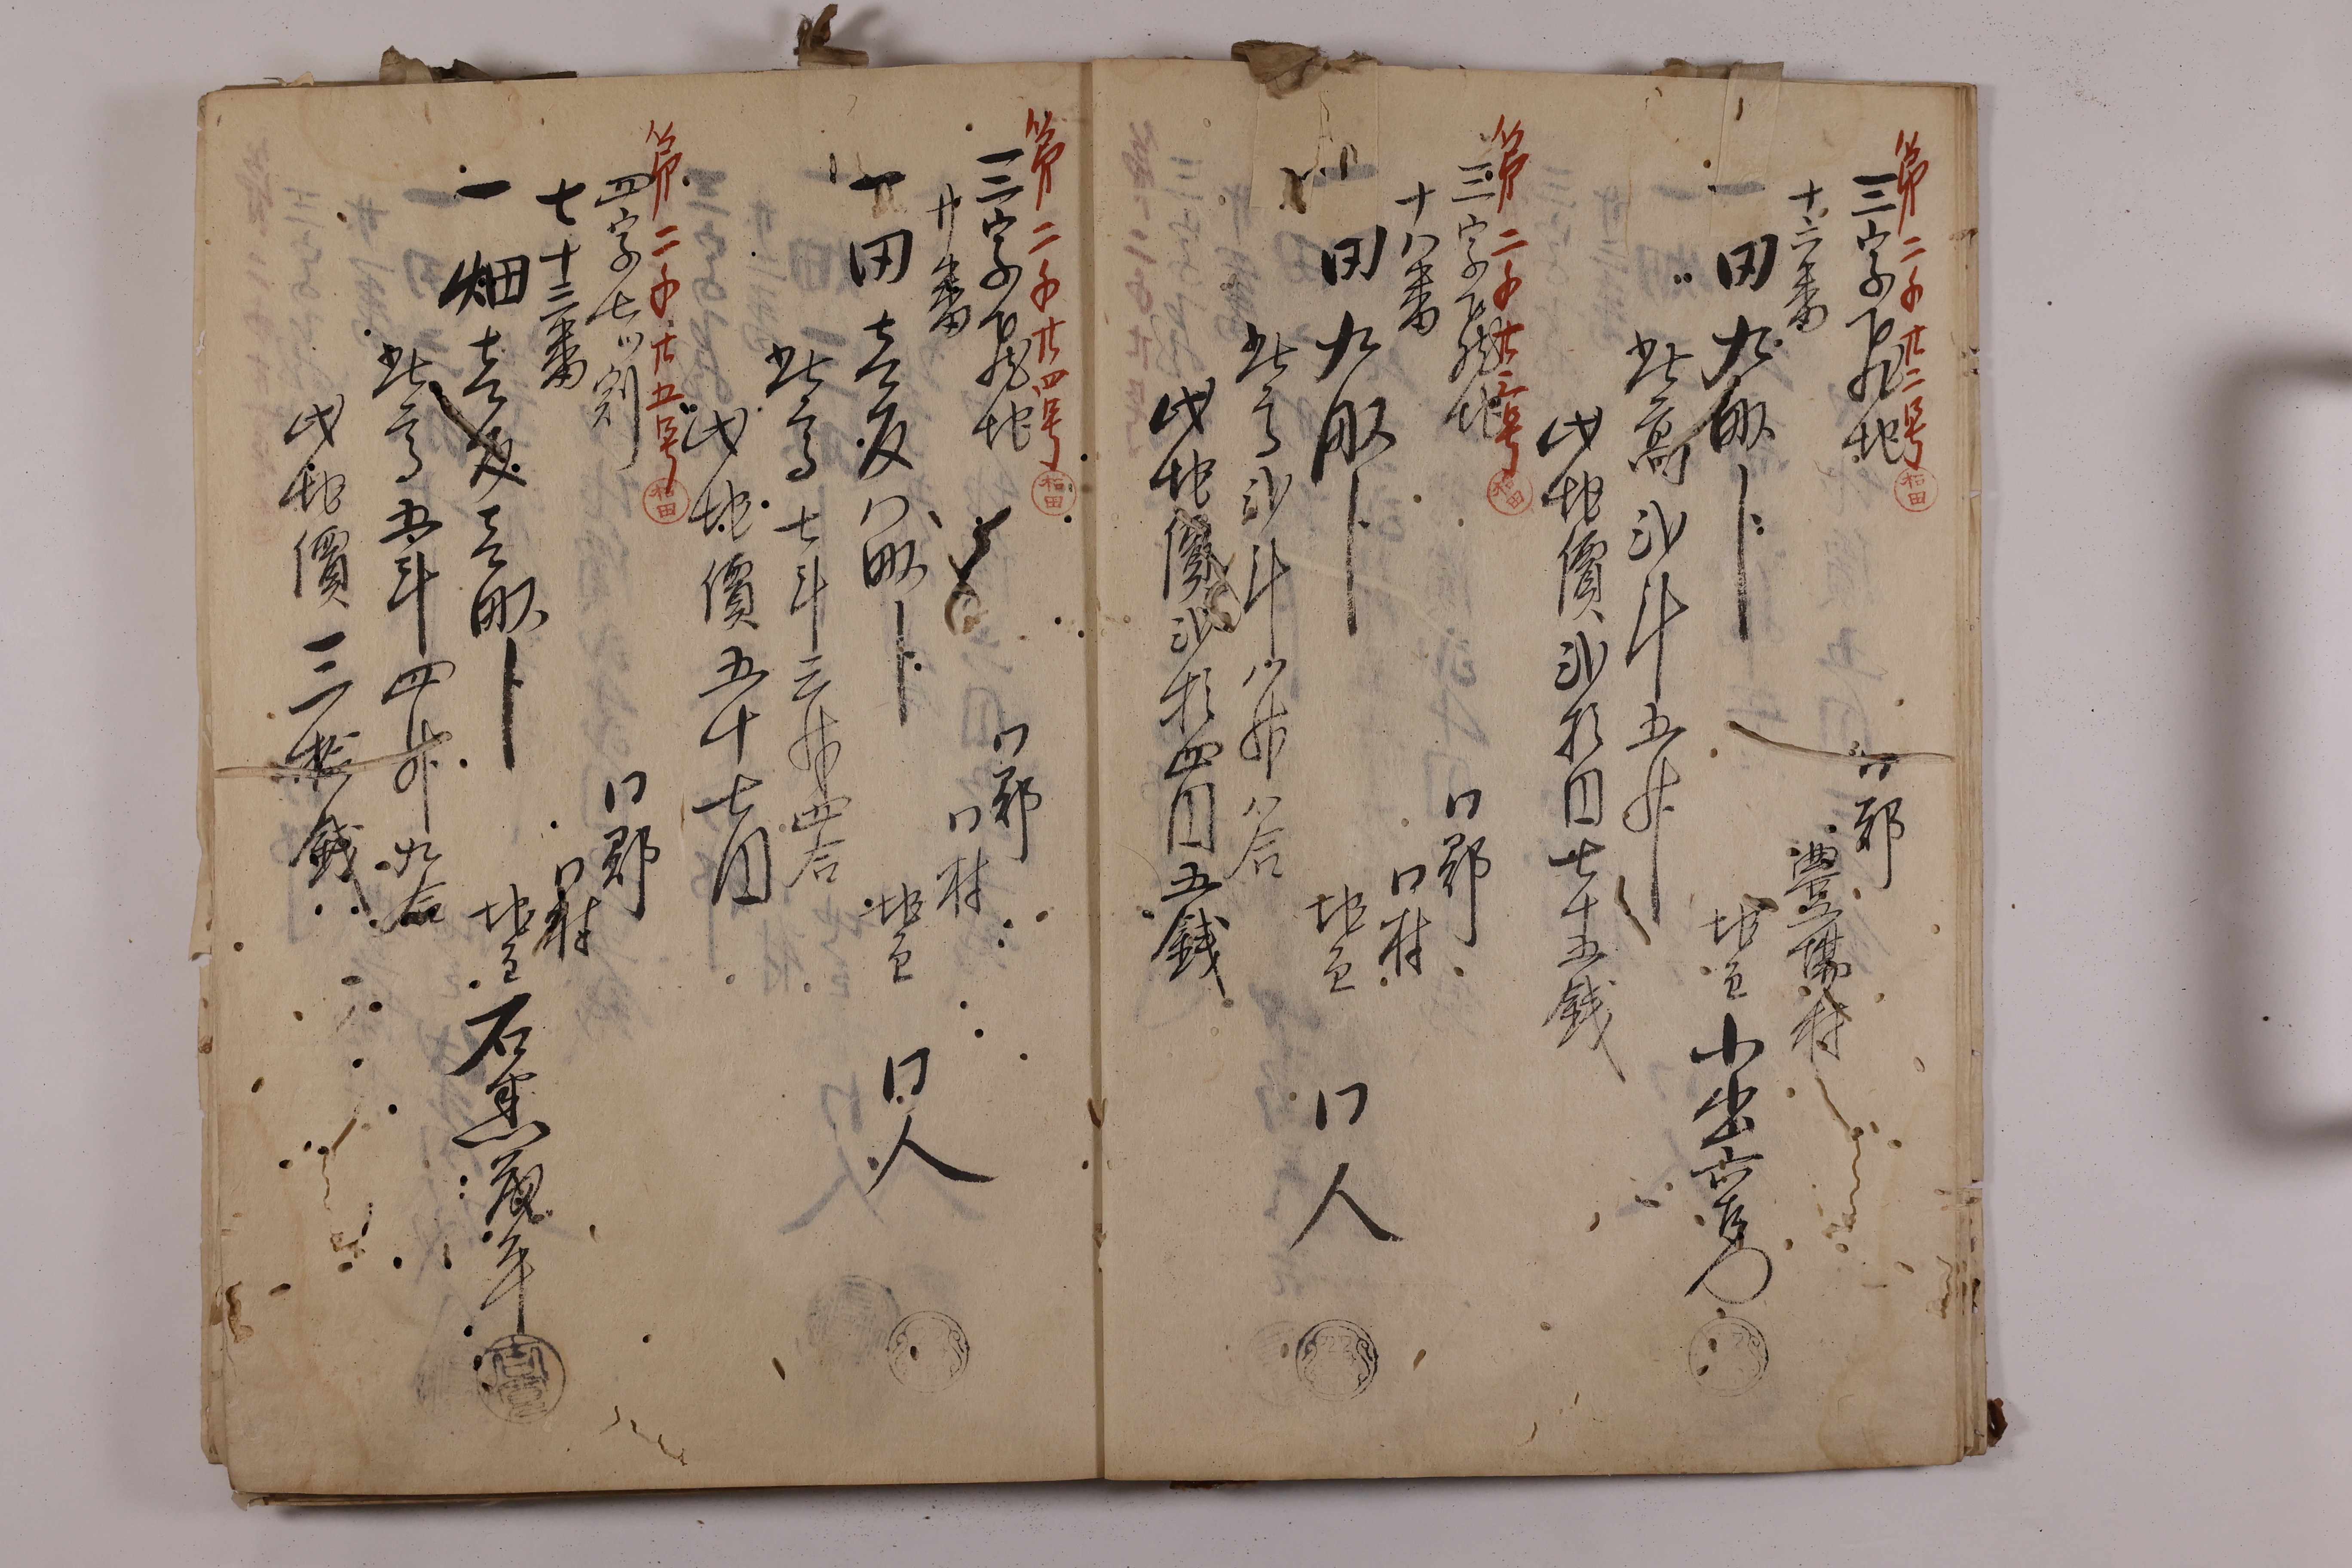 第二千廿二号
和田
三字
地
十六番
一田九畝歩
此高弐斗五升
此地價弐拾円七十五銭
同郡
豊場村
地主
小出
第二千廿三号
和田
三字
地
十八番
一田九畝歩
此高弐斗八升八合
此地價弐拾四円五銭
同郡
同村
地主
同人
第二千廿四号
和田
三字
地
廿番
一田壱反八畝歩
此高七斗三升四合
此地價五十七円
同郡
同村
地主
同人
第二千廿五号
和田
四字七ツ割
七十三番
一畑壱反壱畝歩
此高五斗四升九合
此地價三拾銭
同郡
同村
地主
石黒